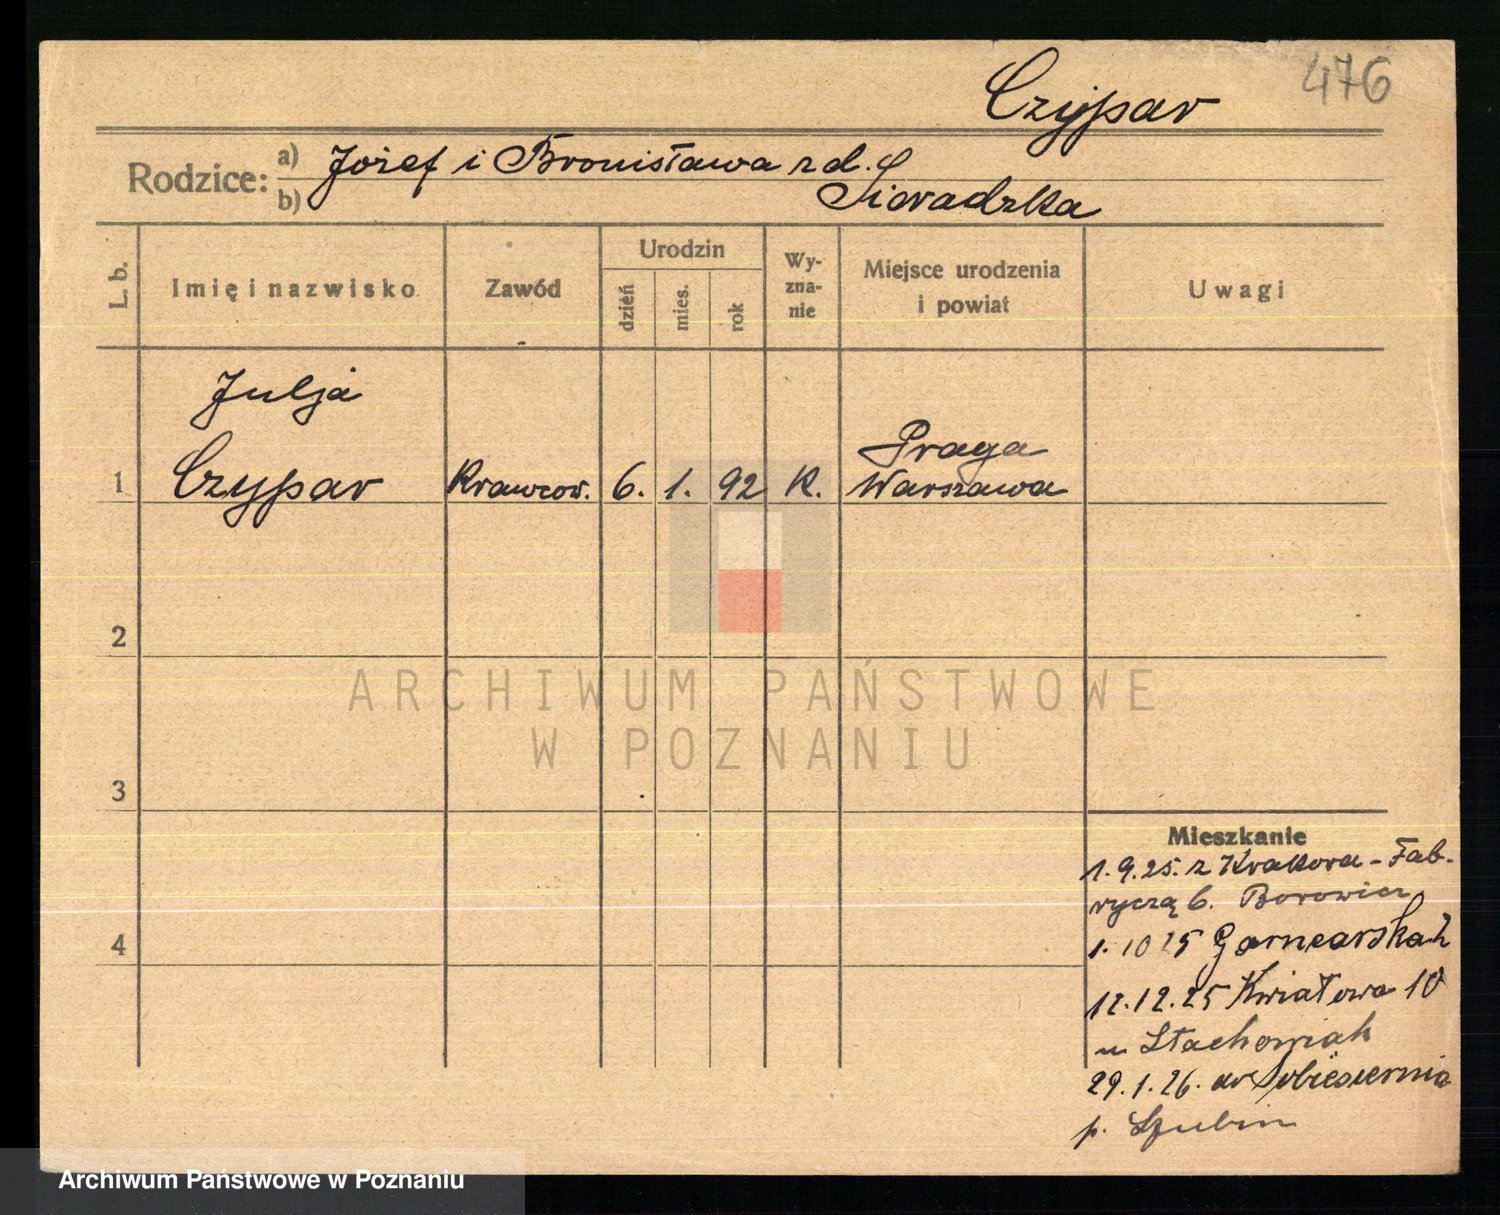 476
Czypar
Rodzice: a) Józef i Bronisława z d.
b) Sieradzka
L. b.
Imię i nazwisko
Zawód
Urodzin
dzień
mies.
rok
Wy-
zna-
nie
Miejsce urodzenia
i powiat
Uwagi
Julja
Praga
1 Czypar Krawcow. 6. 1. 92 K. Warszawa
2
ARCHIWUM PAŃSTWOWE
W POZNANIU
3
Mieszkanie
1.9.25. z Krakowa - Fab-
ryczą 6. Borowicz
4
1.10 25 Garncarska 2
12.12.25 Kwiatowa 10
u Stachowiak
29.1.26. do
p. Szubin
Archiwum Państwowe w Poznaniu